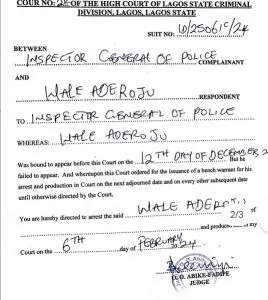 COUR NO: OF THE HIGH COURT OF LAGOS STATE CRIMINAL
DIVISION, LAGOS, LAGOS STATE
SUIT NO:
BETWEEN
INSPECTOR GENERAL OF POLICE
COMPLAINANT
AND
WALE ADEROJU
RESPONDENT
TO INSPECTOR GENERAL OF POLICE
WHEREAS: WALE ADEROJU
Was bound to appear before this Court on the 12TH DAY OF DECEMBER, 2 But he
failed to appear. And whereupon this Court ordered for the issuance of a bench warrant for his
arrest and production in Court on the next adjourned date and on every other subsequent date
until otherwise directed by the Court.
You are hereby directed to arrest the said WALE
2/3 of
and produce my
Court on the 6TH day of FEBRUARY 2024
O. O. ABIKE-FADIPE
JUDGE